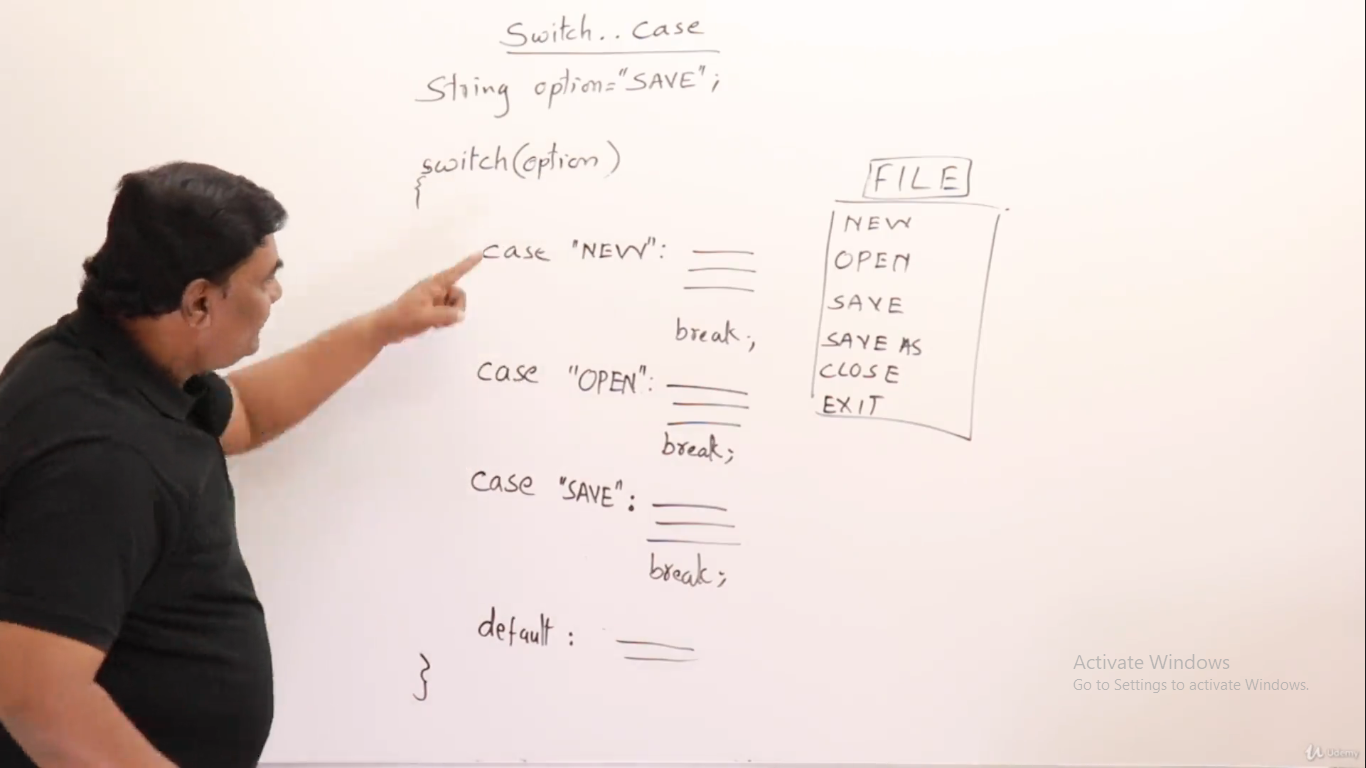 Switch.. Case
String option="SAVE";
switch(option)
{
case "NEW":
break;
case "OPEN":
break;
case "SAVE":
break;
default:
}
FILE
NEW
OPEN
SAVE
SAVE AS
CLOSE
EXIT
Activate Windows
Go to Settings to activate Windows.
Udemy